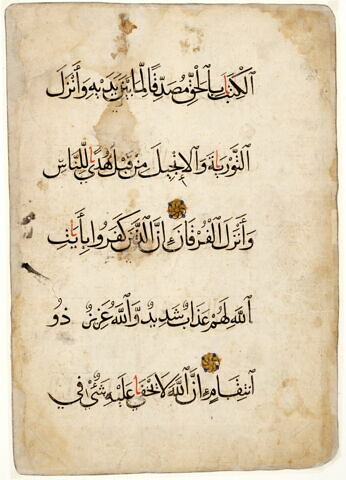 ٱلْكِتَٰبَ بِٱلْحَقِّ مُصَدِّقًا لِّمَا بَيْنَ يَدَيْهِ وَأَنزَلَ
ٱلتَّوْرَىٰةَ وَٱلْإِنجِيلَ مِن قَبْلُ هُدًى لِّلنَّاسِ
وَأَنزَلَ ٱلْفُرْقَانَ إِنَّ ٱلَّذِينَ كَفَرُوا بِـَٔايَٰتِ
ٱللَّهِ لَهُمْ عَذَابٌ شَدِيدٌ وَٱللَّهُ عَزِيزٌ ذُو
ٱنتِقَامٍ إِنَّ ٱللَّهَ لَا يَخْفَىٰ عَلَيْهِ شَىْءٌ فِي